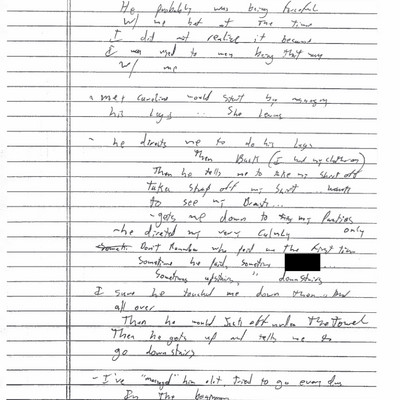 He probably was being forceful
w/ me but at the time
I did not realize it because
I was used to men being that way
w/ me
- me + Caroline would start by massaging
his legs .. She leaves
- he directs me to do his legs
Then Back (I had my clothes on)
Then he tells me to take my shirt off
takes strap off my shirt .. wants
to see my Breasts...
- gets me down to my panties
only
- he directed my very calmly
Don't Remember who paid me the first time
Sometime he paid, sometime
Sometimes upstairs, " downstairs
I sure he touched me down there
all over
Then he would Jack off under the towel
Then he gets up and tells me to
go downstairs
- I've "massaged" him alot, tried to go every day
In the beginning